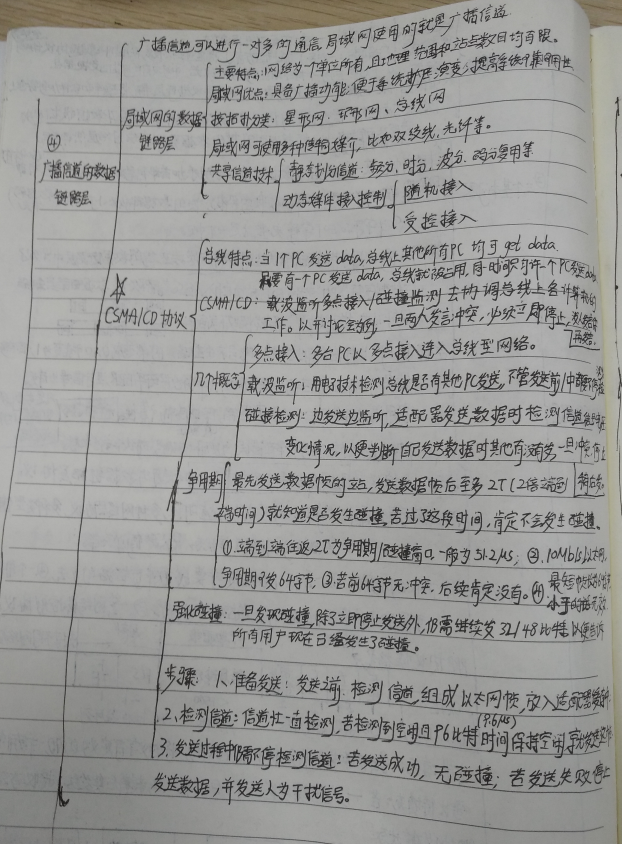 广播信道可以进行一对多的通信,局域网使用的就是广播信道.
主要特点:网络为一个单位所有,且地理范围和站点数目均有限。
局域网优点:具备广播功能;便于系统扩展演变;提高系统可靠可用性
局域网的数据
链路层
按拓扑分类:星形网、环形网、总线网
局域网可使用多种传输媒介,比如双绞线,光纤等。
④
广播信道的数据
链路层
共享信道技术
静态划分信道:频分,时分,波分,码分复用等
动态媒体接入控制
随机接入
受控接入
总线特点:当1个PC发送data,总线上其他所有PC 均可 get data.
只要有一个PC发送data,总线就被占用,同一时间只允许一个PC发送data
☆
CSMA/CD协议
CSMA/CD:载波监听多点接入/碰撞监测 去协调总线上各计算机的
工作。以开讨论会为例,一旦两人发言冲突,必须立即停止,
再発
几个概念
多点接入:多台PC以多点接入进入总线型网络。
载波监听:用电子技术检测总线是否有其他PC发送,不管发送前/中
碰撞检测:边发送边监听,适配器发送数据时检测信道
变化情况,以便判断自己发送数据时其他有没有发,一旦冲突,停止
争用期
最先发送数据帧的站,发送数据帧后至多2T(2倍端到
端时间)就知道是否发生碰撞,若过了这段时间,肯定不会发生碰撞。
①.端到端往返2T为争用期/碰撞窗口,一般为51.2μs;②.10Mb/s以太网,
争用期可发64字节,③.若前64字节无冲突,后续肯定没有。④最短帧
小于的
强化碰撞:一旦发现碰撞,除了立即停止发送外,仍需继续发32/48比特以便告诉
所有用户现在已经发生了碰撞。
步骤: 1.准备发送:发送之前,检测信道,组成以太网帧,放入适配器缓存
2.检测信道:信道忙一直检测,若检测到空闲且96比特时间保持空闲,就发送
(9.6μs)
3.发送过程中仍需不停检测信道:若发送成功,无碰撞;若发送失败,停止
发送数据,并发送人为干扰信号。